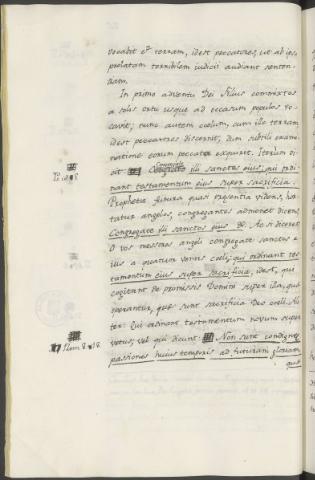 vocabit et terram, idest peccatores, ut ab ipso
prolatam terribilem judicii audiant senten-
tiam.
In primo adventu Dei Filius commixtos
a solis ortu usque ad occasum populos vo-
cavit; tunc autem coelum, cum illo terram
idest peccatores discernit, dum subtili exami-
natione eorum peccata exquirit. Iterum di-
cit Congregate illi sanctos eius, qui ordi-
nant testamentum eius super sacrificia.
Propheta futura quasi praesentia videns, hor-
tatur angelos, congregantes admonet dicens,
Congregate illi sanctos eius &c. Ac si diceret
O vos messores angeli congregate sanctos e-
ius a quatuor ventis coeli; qui ordinant tes-
tamentum eius super sacrificia, idest, qui
cogitant de promissis Domini super illa, quae
operantur, quae sunt sacrificia Deo
ter: Qui ordinant testamentum novum super
vetus; vel qui dicunt: Non sunt condignae
Rom 8. 18.
passiones huius temporis ad futuram gloriam
quae